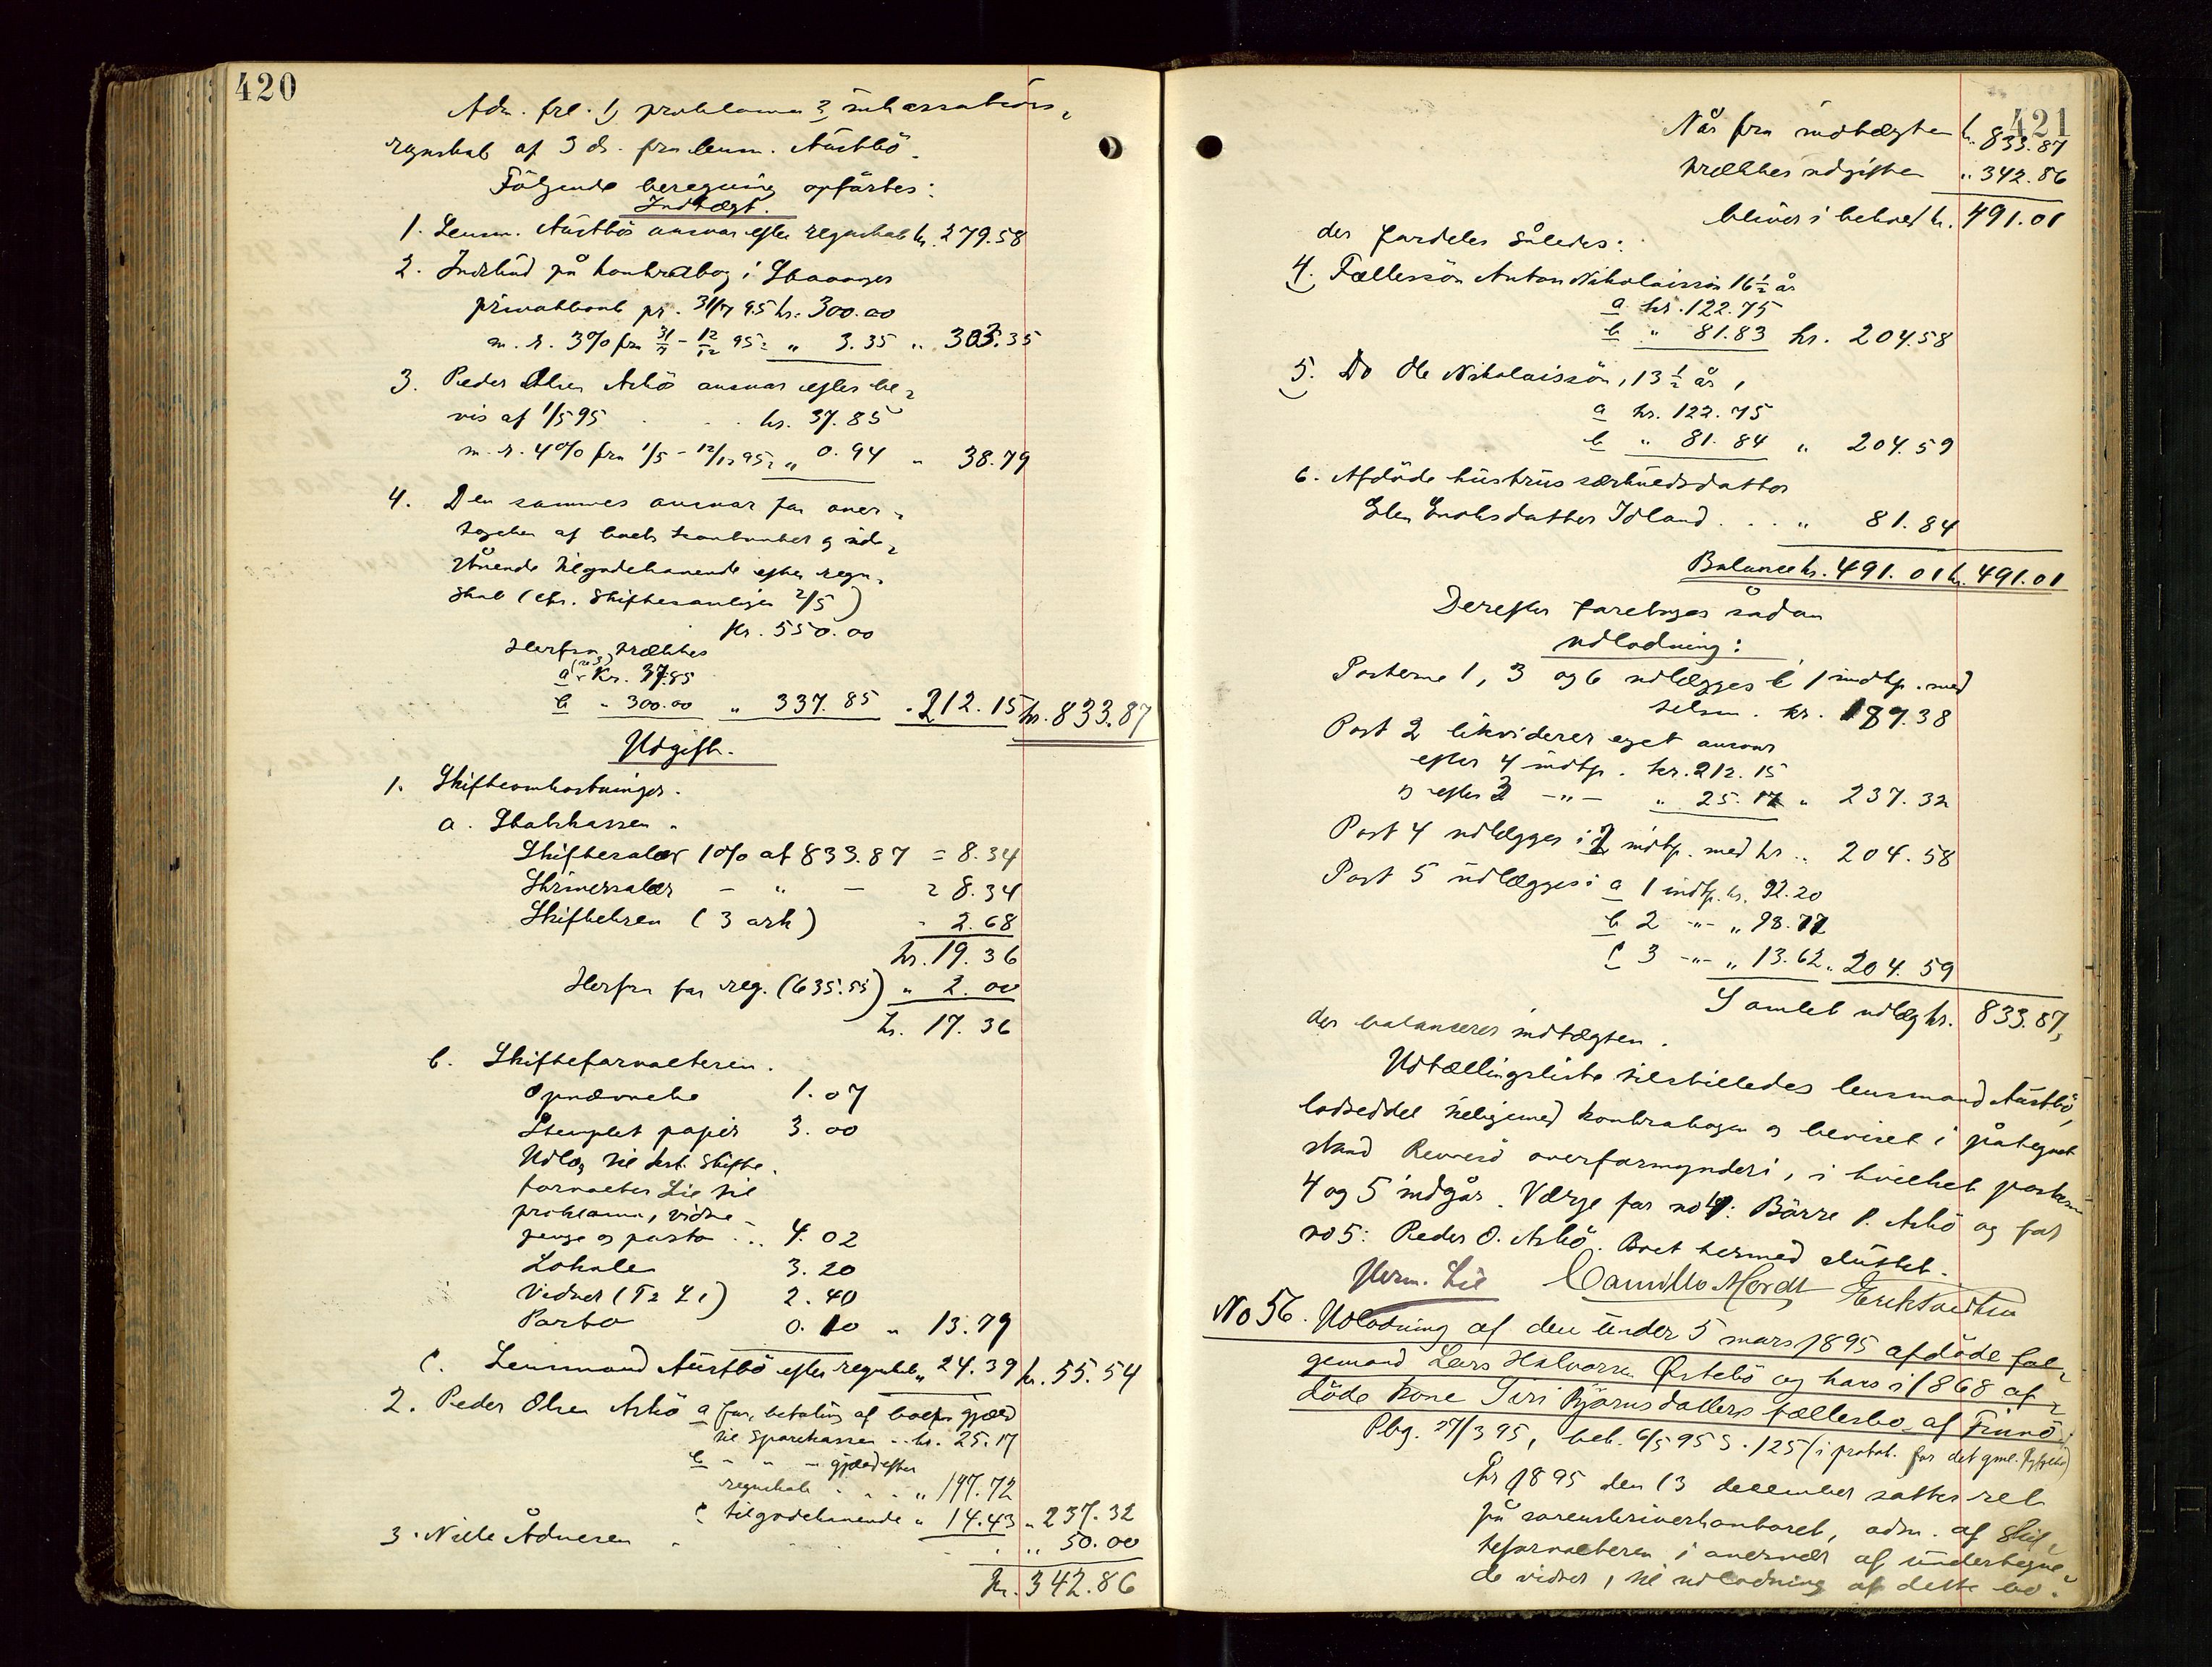 420
Adm. frl. 1) proklama 2, inkassations-
regnskab af 3 ds. fra lensm. Austbö.
Fölgende beregning opförtes:
Indtægt.
1. Lensm. Austbös ansvar efter regnskab kr. 279.58
2. Indskud på kontrabog i Stavanger
privatbank pr. 31/7 95 kr. 300.00
m. r. 3% fra 31/7 - 12/12 95 = " 3.35 " 303.35
3. Peder Olsen Askö ansvar efter be-
vis af 1/5 95 . . . kr. 37.85
m. r. 4% fra 1/5 - 12/12 95 = " 0.94 " 38.79
4. Den sammes ansvar for over-
tagelsen af boets kontanter og ude-
stående tilgodehavende efter regn-
skab (cfr. Skiftesamlingen 2/5)
kr. 550.00
Herfra trækkes
a (no 3) Kr. 37.85
b " 300.00 " 337.85 " 212.15 kr. 833.87
Udgift.
1. Skifteomkostninger.
a. Statskassen.
Skiftesalær 1% af 833.87 = 8.34
Skriversalær - " - = 8.34
Skiftebrev (3 ark) - 2.68
kr. 19.36
Herfra for reg. (635.55) " 2.00
kr. 17.36
b. Skifteforvalteren.
Opnævnelse 1.07
Stemplet papir 3.00
Udlæg til kst. Skifte-
forvalter Lie til
proklama, vidne-
penge og porto . . 4.02
Lokale 3.20
Vidner (T2 L1) 2.40
Porto 0.10 " 13.79
c. Lensmand Austbö efter regnskab " 24.39 kr. 55.54
2. Peder Olsen Askö a for betaling af boets gjæld
til Sparekassen .. kr. 25.17
b - " - gjæld efter
regnskab . . . " 197.72
c tilgodehavende " 14.43 " 237.32
3. Nille Ådnesen . . . " 50.00
Kr. 342.86
421
Når fra indtægten kr. 833.87
trækkes udgiften " 342.86
bliver i behold kr. 491.01
der fordeles således:
4. Fællessön Anton Nikolaissön 16 1/2 år
a kr. 122.75
b " 81.83 kr. 204.58
5. Do Ole Nikolaissön, 13 1/2 år,
a kr. 122.75
b " 81.84 " 204.59
6. Afdöde hustrus særkuldsdatter
Elen Enoksdatter Idland . . . " 81.84
Balance kr. 491.01 kr. 491.01
Derefter foretoges sådan
udlodning:
Posterne 1, 3 og 6 udlægges i 1 indtp. med
tilsm. kr. 187.38
Post 2 likviderer eget ansvar
efter 4 indtp. kr. 212.15
og efter 3 -"- " 25.17 " 237.32
Post 4 udlægges i 2 indtp. med kr. .. 204.58
Post 5 udlægges i a 1 indtp. kr. 92.20
b 2 -"- " 98.77
c 3 -"- " 13.62 " 204.59
Samlet udlæg kr. 833.87,
der balancerer indtægten.
Udtællingsliste tilstilledes lensmand Austbö,
lodseddel tilligemed kontrabogen og beviset i påtegnet
stand Rennesö overformynderi, i hvilket posterne
4 og 5 indgår. Værge for no 4: Börre P. Askö og for
no 5: Peder O. Askö. Boet hermed sluttet.
Herm. Lie Camillo Mordt Erik Knudsen
No 56. Udlodning af den under 5 mars 1895 afdöde föl-
gemand Lars Halvorsen Östebö og hans i 1868 af-
döde kone Siri Björnsdatters fællesbo af Finnö.
Pbg. 27/3 95, beh. 6/5 95 S. 125 (i protok. for det gml. Ryfylke)
År 1895 den 13 december sattes ret
på sorenskriverkontoret, adm. af skif-
teforvalteren i overvær af undertegne-
de vidner, til udlodning af dette bo.